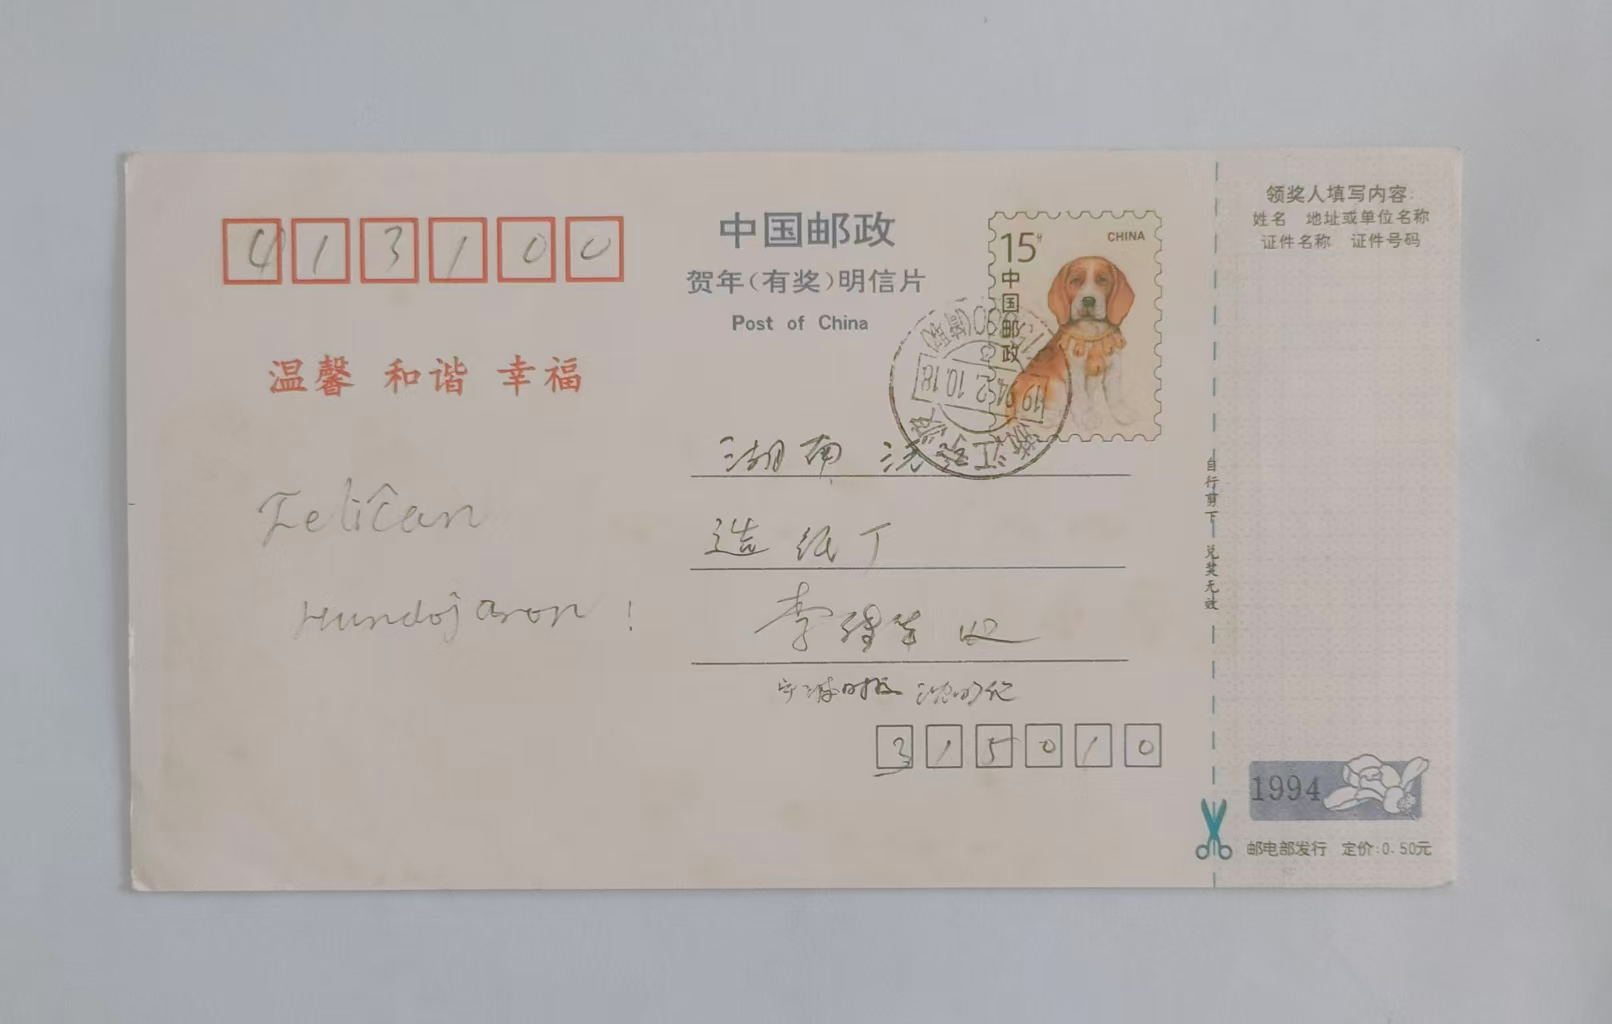 413100
中国邮政
贺年(有奖)明信片
Post of China
温馨 和谐 幸福
15分
CHINA
中国邮政
1994.2.10.18
浙江宁波
湖南 沅江
造纸厂
李 收
Feliĉan
Hundojaron!
沈
315010
领奖人填写内容:
姓名 地址或单位名称
证件名称 证件号码
自行剪下 兑奖无效
1994
邮电部发行 定价:0.50元